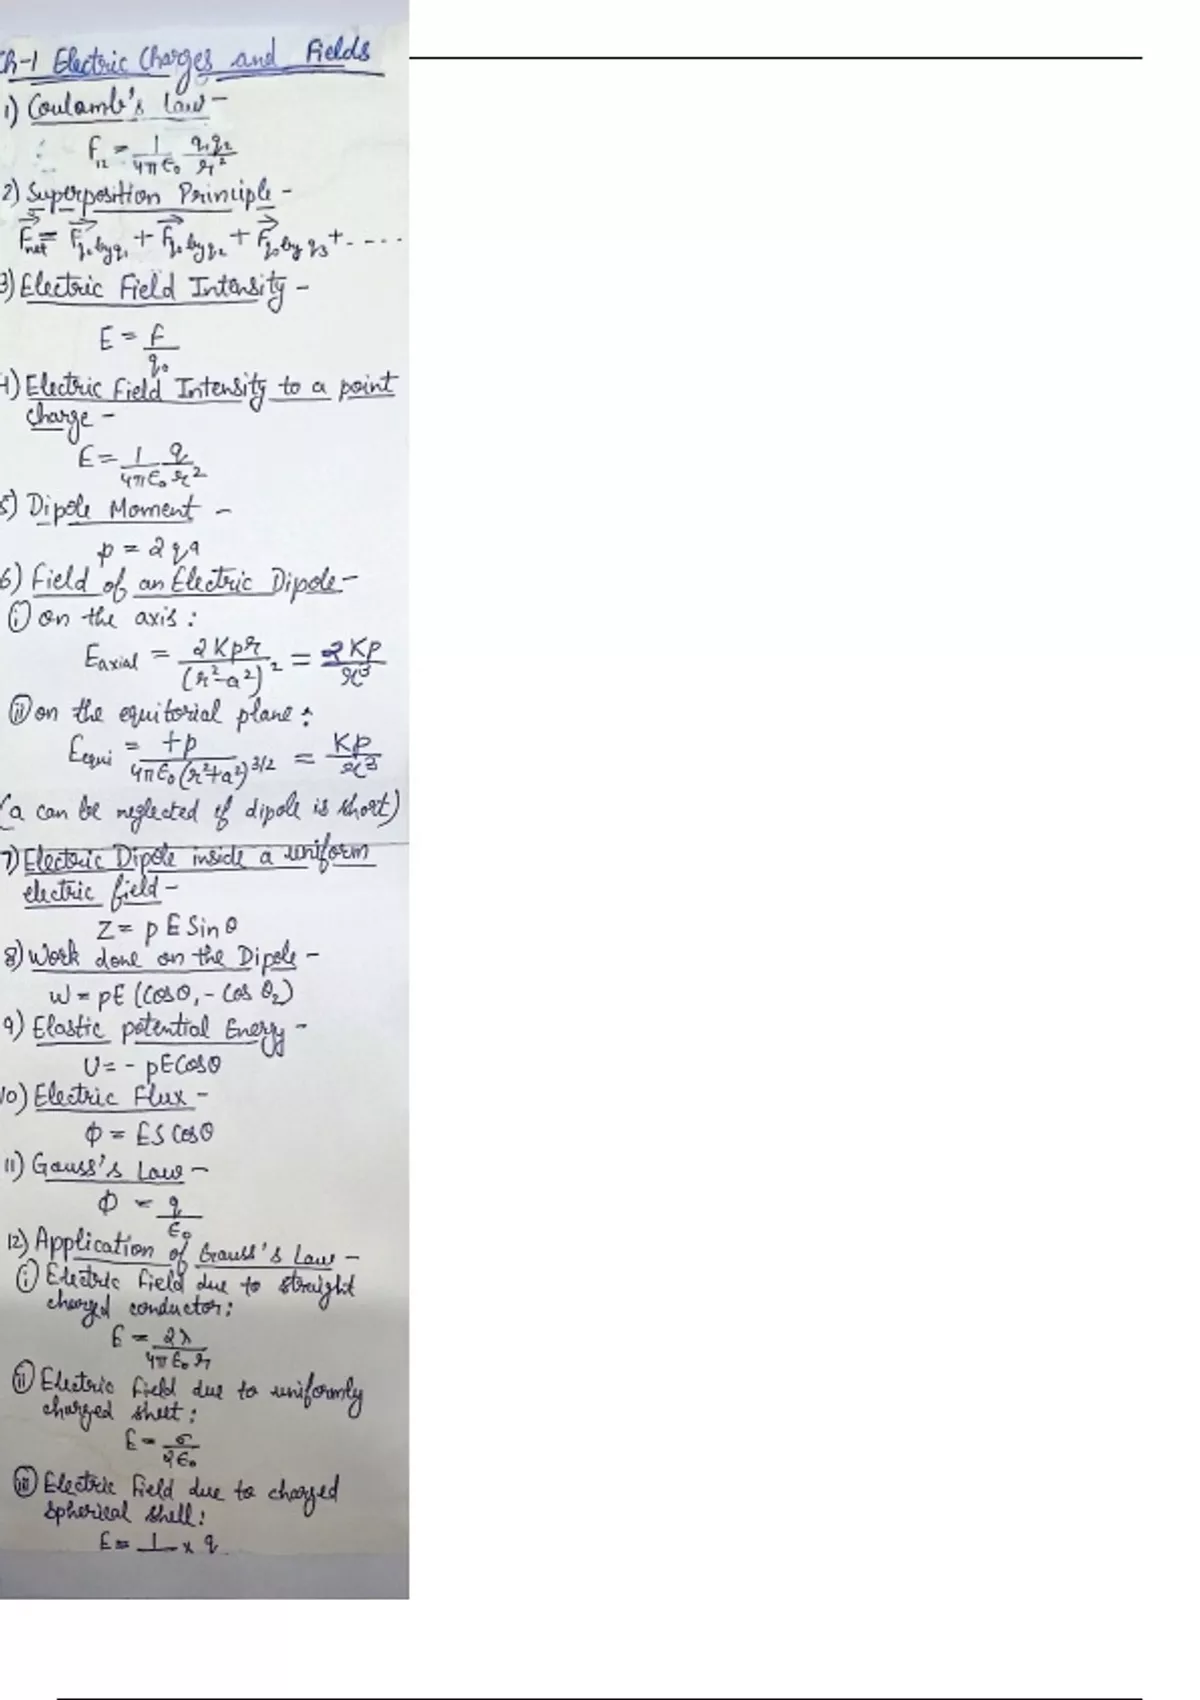 Ch-1 Electric Charges and Fields
1) Coulamb's law -
F₁₂ = 1/4πε₀ q₁q₂/r²
2) Superposition Principle -
F⃗net = F⃗q₀ by q₁ + F⃗q₀ by q₂ + F⃗q₀ by q₃ + - - - -
3) Electric Field Intensity -
E = F/q₀
4) Electric Field Intensity to a point
charge -
E = 1/4πε₀ q/r²
5) Dipole Moment -
p = 2qa
6) Field of an Electric Dipole -
(i) on the axis :
Eaxial = 2Kpr/(r²-a²)² = 2Kp/r³
(ii) on the equitorial plane :
Eequi = +p/4πε₀(r²+a²)^3/2 = Kp/r³
(a can be neglected if dipole is short)
7) Electric Dipole inside a uniform
electric field -
Z = pE Sin θ
8) Work done on the Dipole -
W = pE (Cosθ₁ - Cos θ₂)
9) Elastic potential Energy -
U = - pECosθ
10) Electric Flux -
Φ = ES Cosθ
11) Gauss's Law -
Φ = q/ε₀
12) Application of Gauss's Law -
(i) Electric Field due to straight
charged conductor :
E = 2λ/4πε₀r
(ii) Electric Field due to uniformly
charged sheet :
E = σ/2ε₀
(iii) Electric Field due to charged
Spherical shell :
E = 1 × q